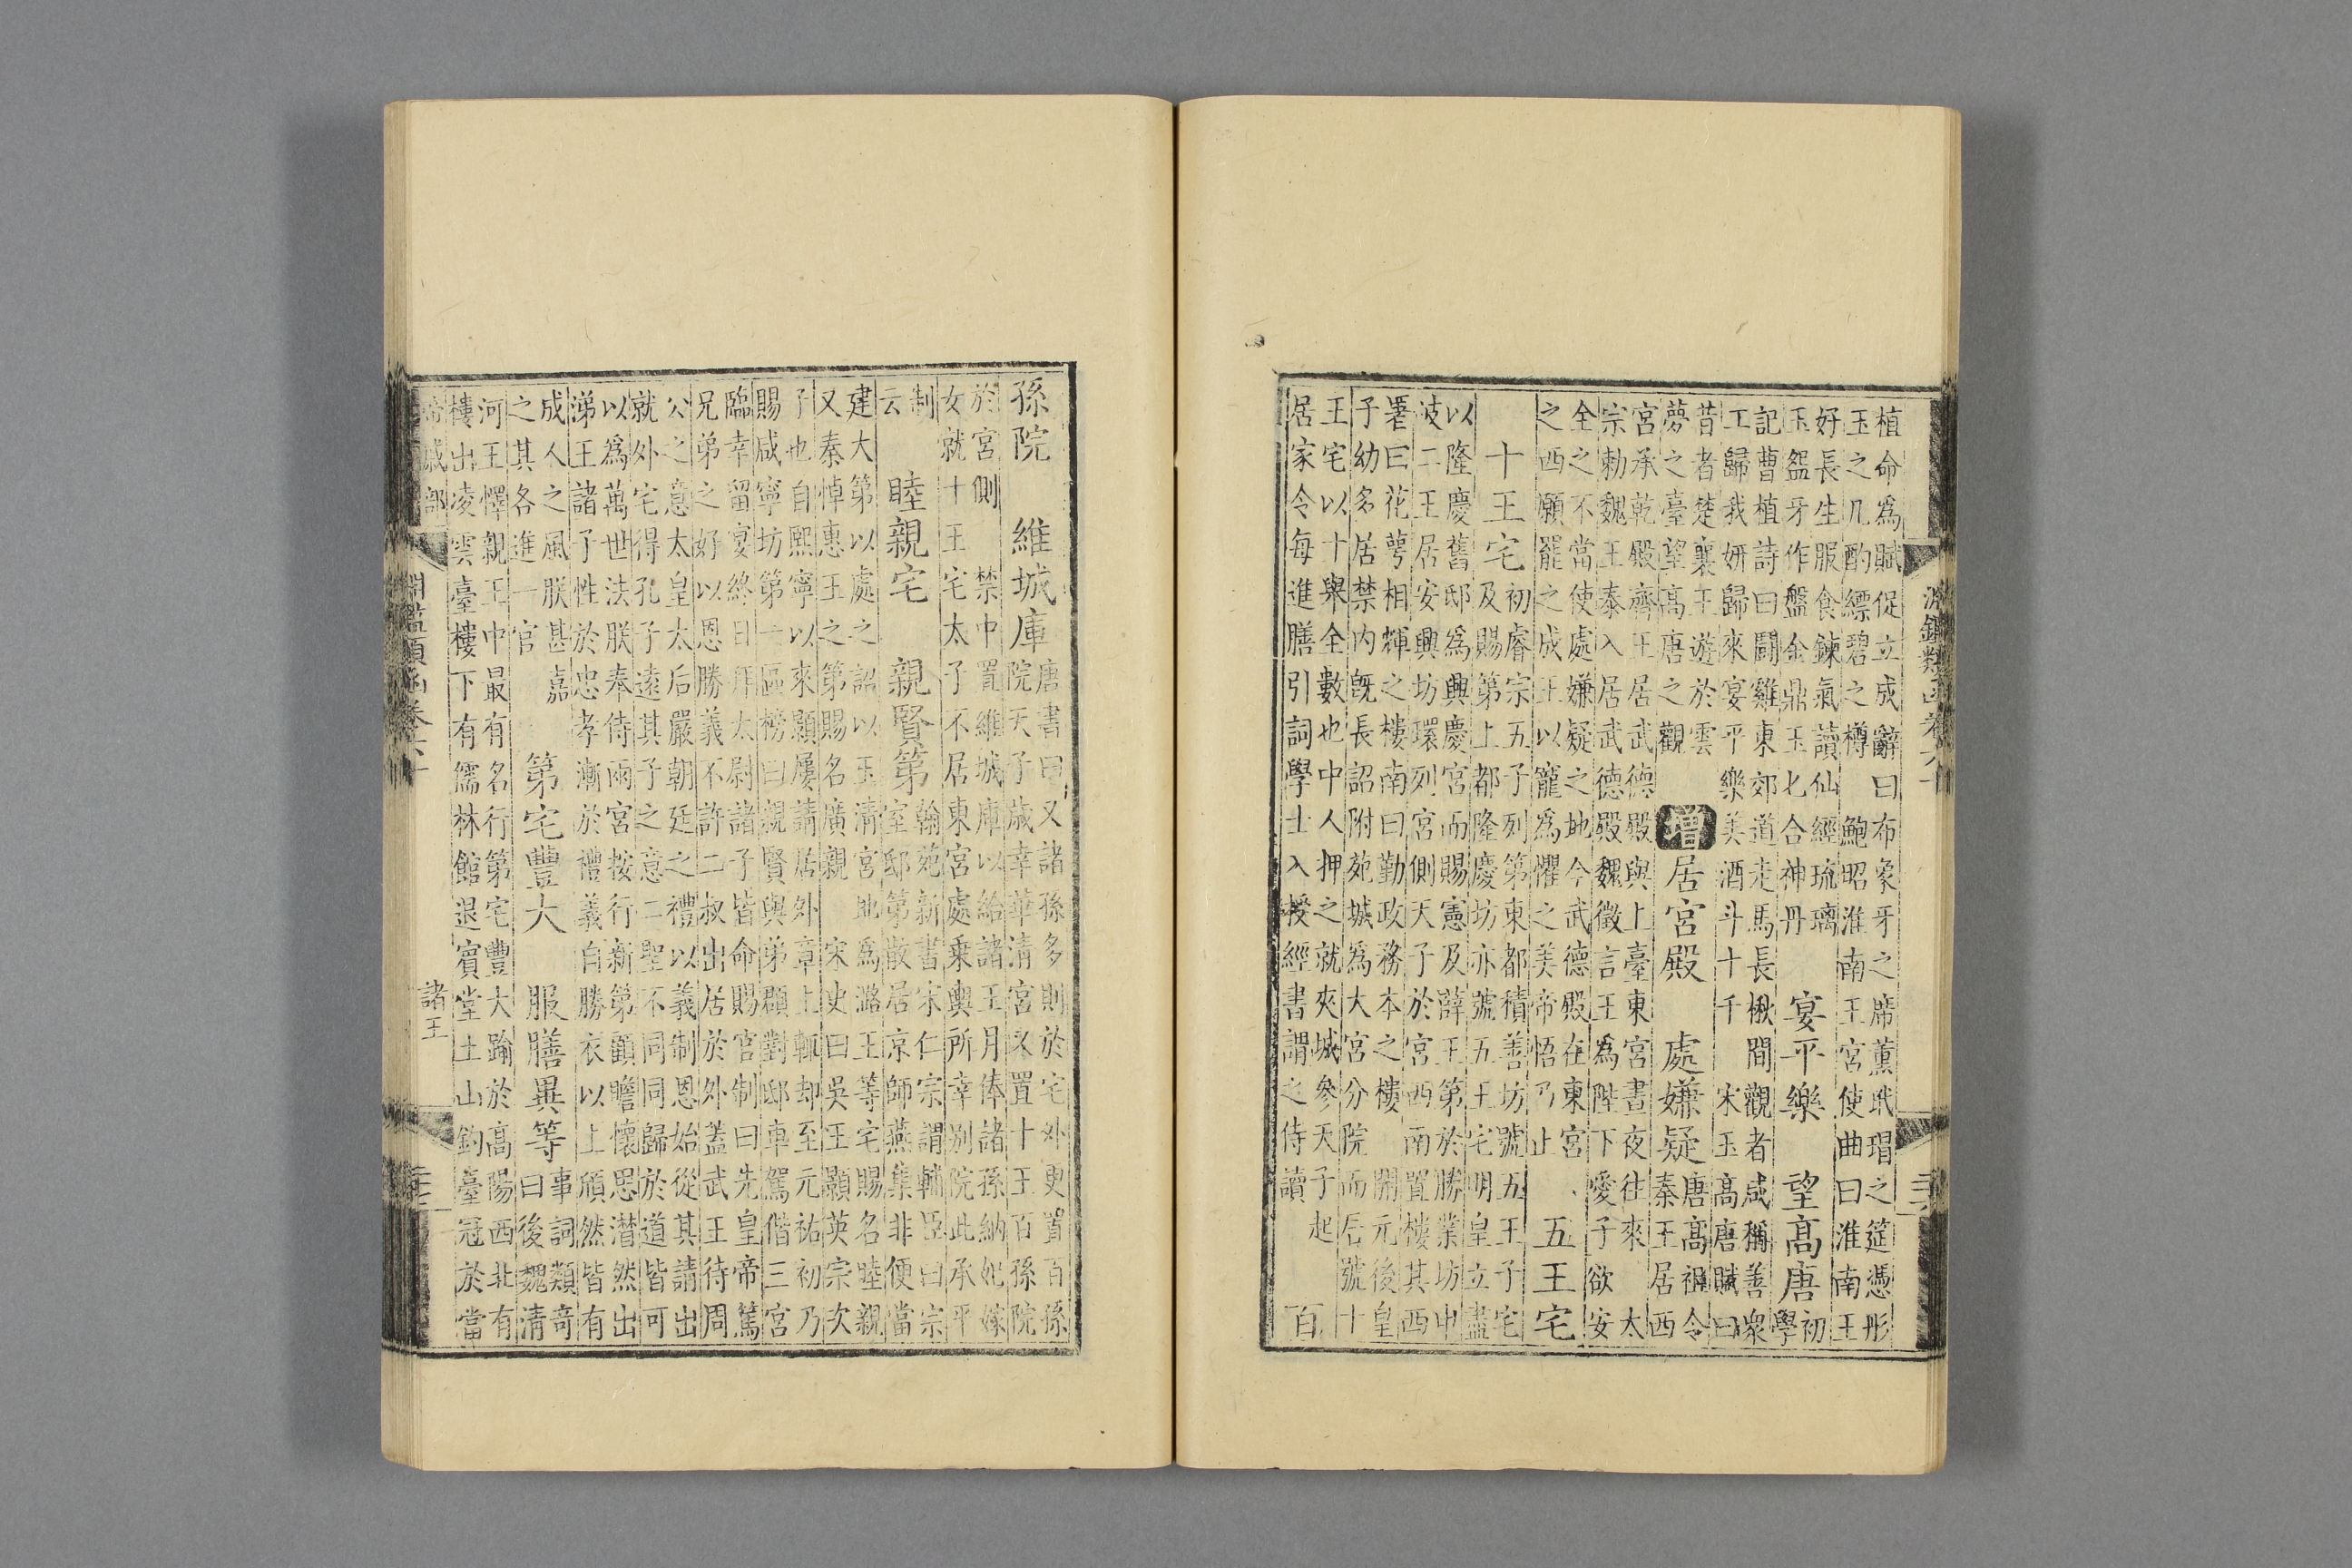 淵鑑類函卷六十
植命爲賦促立成辭曰布象牙之席薰玳瑁之筵憑彤
玉之几酌縹碧之樽 鮑昭淮南王宮使曲曰淮南王
好長生服食鍊氣讀仙經琉璃
玉盌牙作盤金鼎玉匕合神丹
宴平樂 望高唐
初
學
記曹植詩曰鬬雞東郊道走馬長楸間觀者咸稱善衆
工歸我妍歸來宴平樂美酒斗十千 宋玉高唐賦曰
昔者楚襄王遊於雲
夢之臺望高唐之觀
增 居宮殿 處嫌疑
唐高祖令
秦王居西
宮承乾殿齊王居武德殿與上臺東宮晝夜往來 太
宗勅魏王泰入居武德殿魏徵言王爲陛下愛子欲安
全之不當使處嫌疑之地今武德殿在東宮
之西願罷之成王以寵爲懼之美帝悟乃止
五王宅
十王宅
初睿宗五子列第東都積善坊號五王子宅
及賜第上都隆慶坊亦號五王宅明皇立盡
以隆慶舊邸爲興慶宮而賜憲及薛王第於勝業坊申
岐二王居安興坊環列宮側天子於宮西南置樓其西
署曰花萼相輝之樓南曰勤政務本之樓 開元後皇
子幼多居禁內旣長詔附苑城爲大宮分院而居號十
王宅以十舉全數也中人押之就夾城參天子起
居家令每進膳引詞學士入授經書謂之侍讀
百
孫院 維城庫
唐書曰又諸孫多則於宅外更置百孫
院天子歲幸華清宮又置十王百孫院
於宮側 禁中置維城庫以給諸王月俸諸孫納妃嫁
女就十王宅太子不居東宮處乗輿所幸別院此承平
制
云
睦親宅 親賢第
翰苑新書宋仁宗謂輔臣曰宗
室邸第散居京師燕集非便當
建大第以處之 詔以玉清宮地爲潞王等宅賜名睦親
又秦悼惠王之第賜名廣親 宋史曰吳王顥英宗次
子也自熙寧以來顥屢請居外章上輒却至元祐初乃
賜咸寧坊第一區榜曰親賢與弟頵對邸車駕偕三宮
臨幸留宴終日拜太尉諸子皆命賜官制曰先皇帝篤
兄弟之好以恩勝義不許二叔出居於外蓋武王待周
公之意太皇太后嚴朝廷之禮以義制恩始從其請出
就外宅得孔子遠其子之意二聖不同同歸於道皆可
以爲萬世法朕奉侍兩宮按行新第顧瞻懷思潸然出
涕王諸子性於忠孝漸於禮義自勝衣以上頎然皆有
成人之風朕甚嘉
之其各進一官
第宅豐大 服膳異等
事詞類奇
曰後魏清
河王懌親王中最有名行第宅豐大踰於高陽西北有
樓出凌雲臺樓下有儒林館退賓堂土山釣臺冠於當
帝戚部 淵鑑類函卷六十 諸王